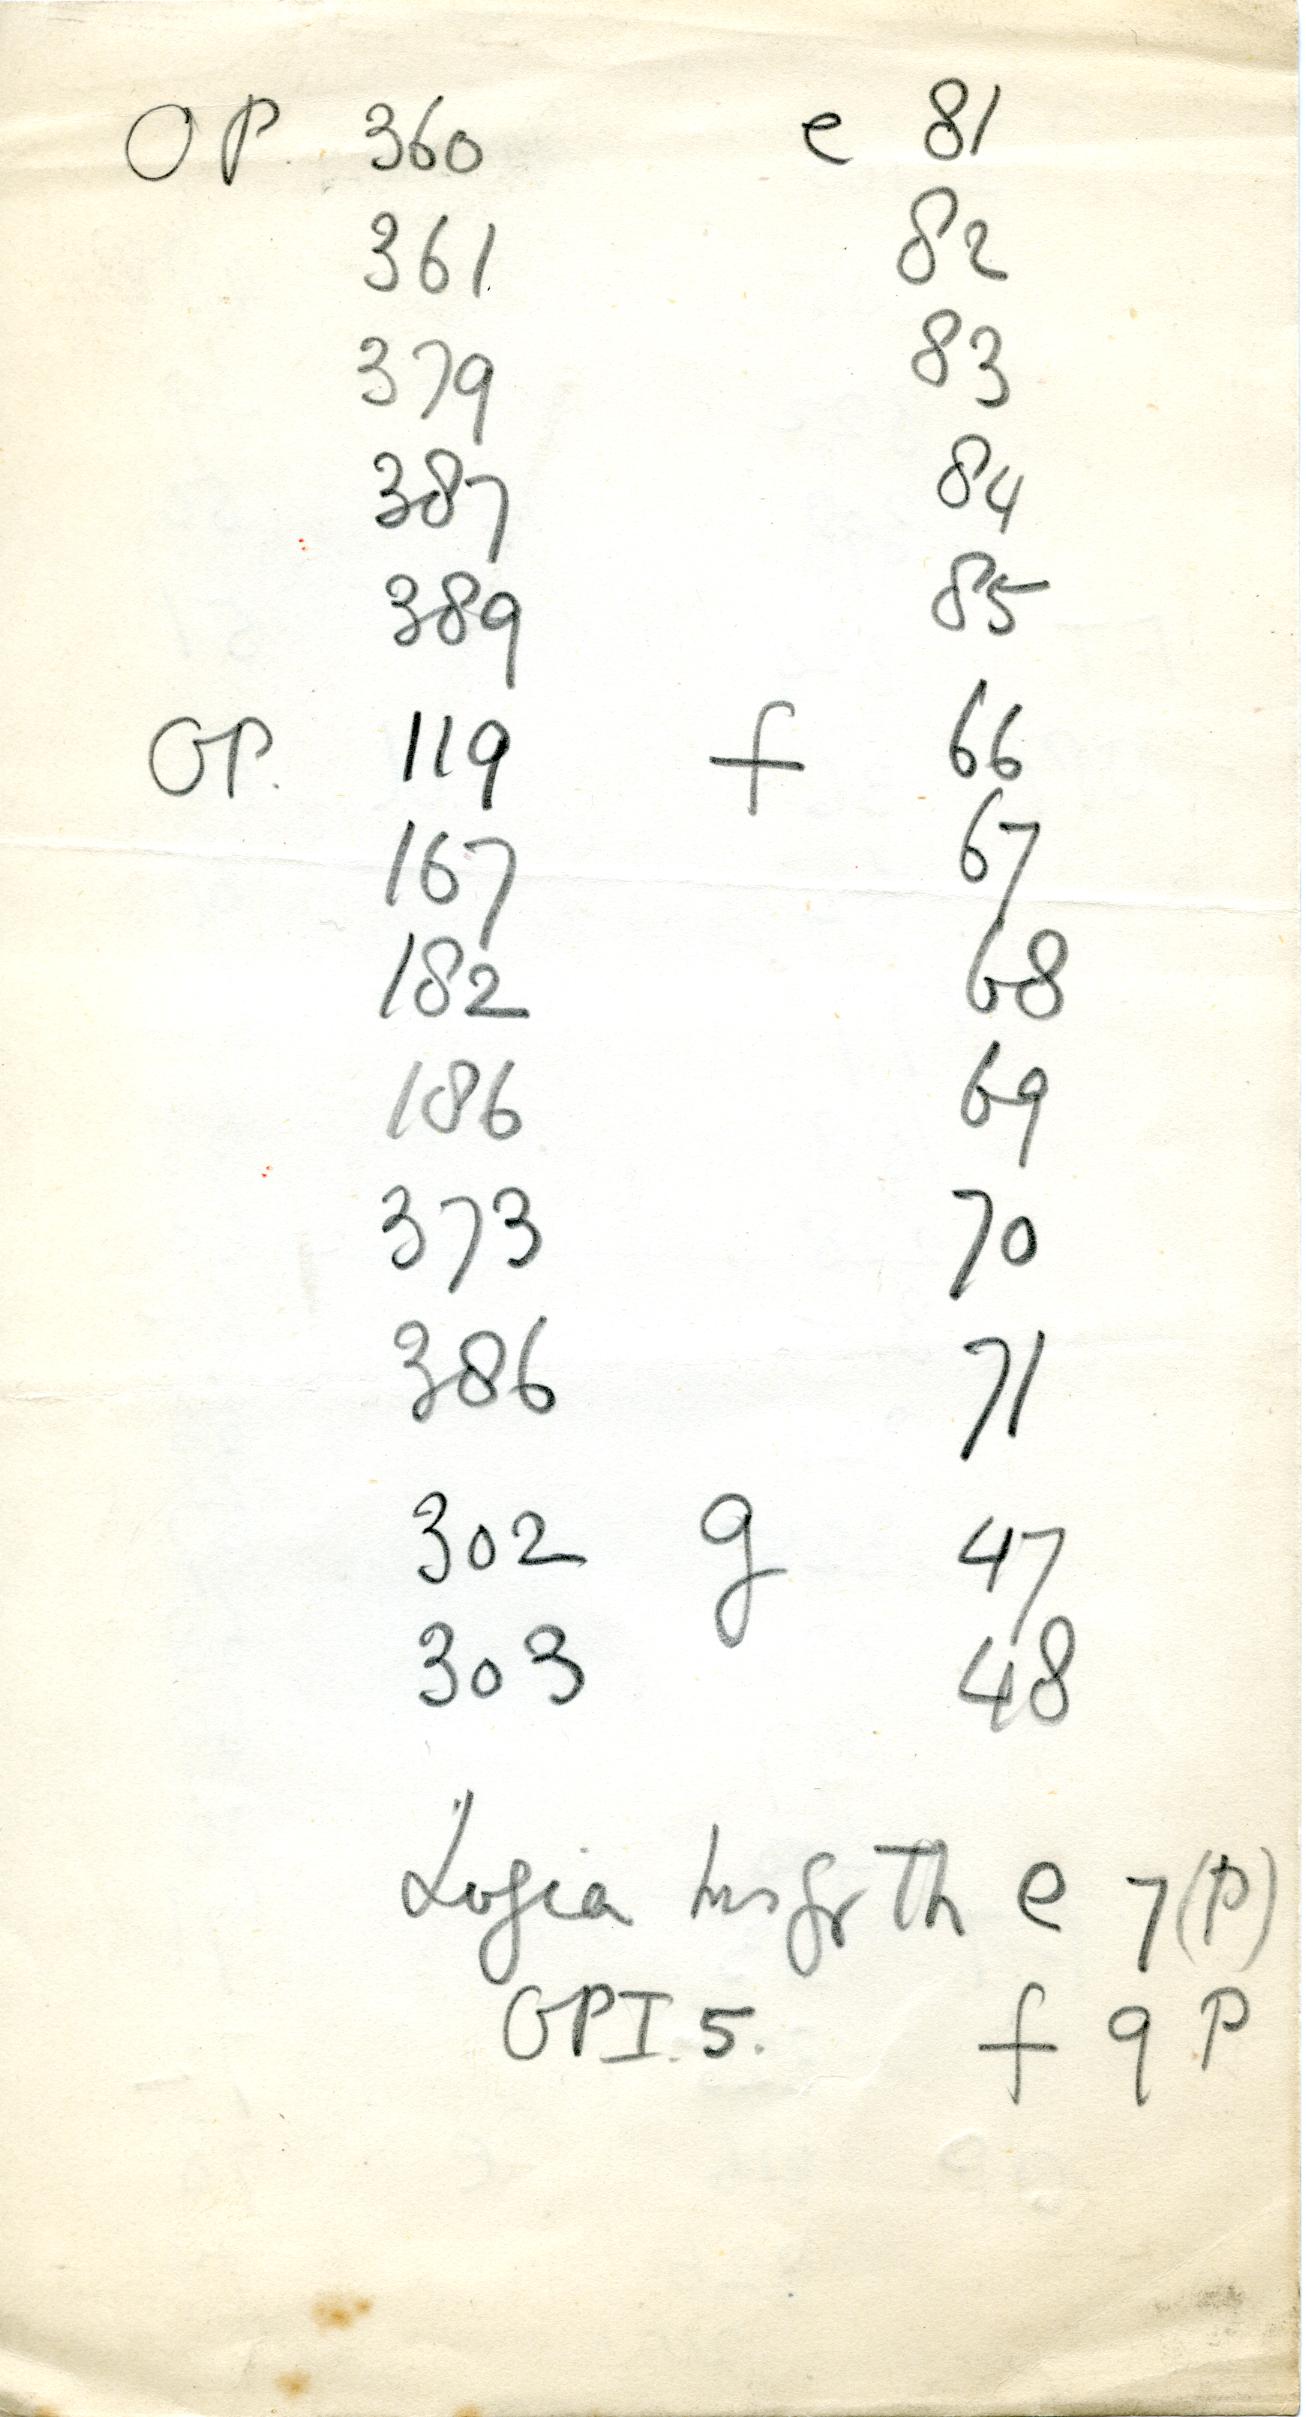 OP. 360 e 81
361 82
379 83
387 84
389 85
OP. 119 f 66
167 67
182 68
186 69
373 70
386 71
302 g 47
303 48
Logia ms gr th e 7 (P)
OP I. 5. f 9 P